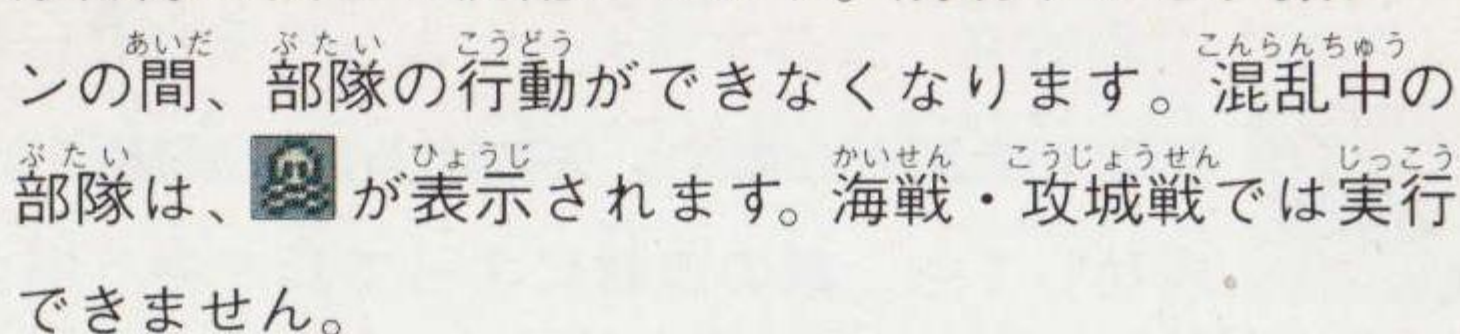 ンの間、部隊の行動ができなくなります。混乱中の
部隊は、が表示されます。海戦・攻城戦では実行
できません。